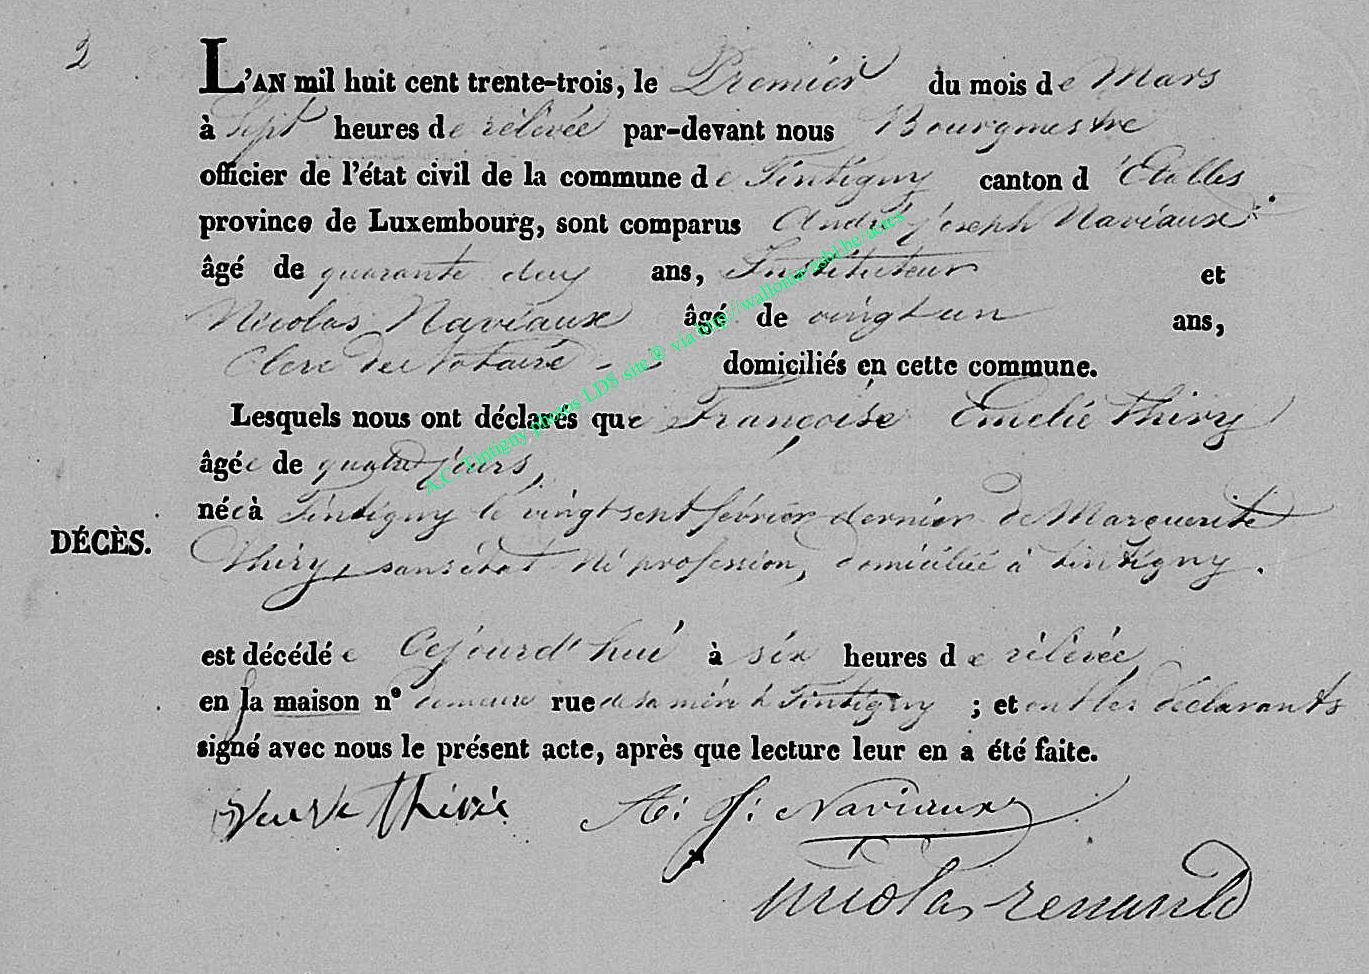 2
L'AN mil huit cent trente-trois, le Premier du mois de Mars
à Sept heures de rélévée par-devant nous Bourgmestre
officier de l'état civil de la commune de Tintigny canton d'Etalles
province de Luxembourg, sont comparus André Joseph Naviaux
âgé de quarante deux ans, Instituteur et
Nicolas Naviaux âgé de vingt un ans,
Clerc de Notaire domiciliés en cette commune.
Lesquels nous ont déclarés que Françoise Emelie Thiry
âgée de quatre jours,
née à Tintigny le vingt sept février dernier de Marguerite
DÉCÈS.
Thiry, sans état ni profession, domiciliée à tintigny.
est décédée Cejourd'hui à six heures de rélévée
en la maison n° demeure rue de sa mère à Tintigny ; et ont les déclarants
signé avec nous le présent acte, après que lecture leur en a été faite.
A: J: Naviaux
A.C. Tintigny photos LDS site ® via http://wallonia-asbl.be/actes